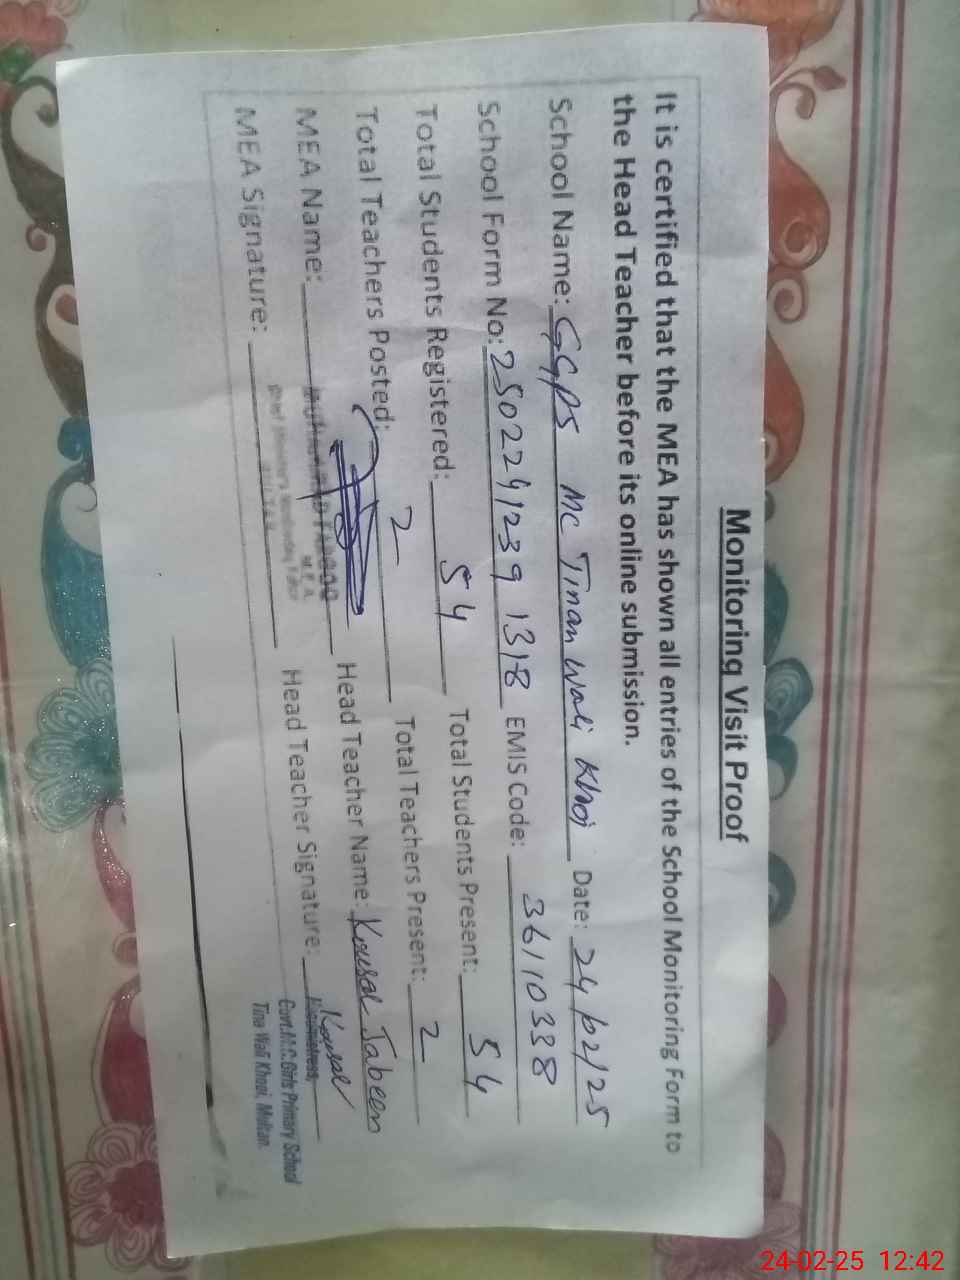 Monitoring Visit Proof
It is certified that the MEA has shown all entries of the School Monitoring Form to
the Head Teacher before its online submission.
School Name: GGPS MC Tinan Wali Khoi Date: 24/02/25
School Form No: 2502241239 1318 EMIS Code: 36110338
Total Students Registered: 54 Total Students Present: 54
Total Teachers Posted: 2 Total Teachers Present: 2
MEA Name: Head Teacher Name: Kousal Jabeen
MEA Signature: Head Teacher Signature: Kousal
Headmistress,
Govt.M.C.Girls Primary School
Tina Wali Khooi, Multan.
24-02-25 12:42